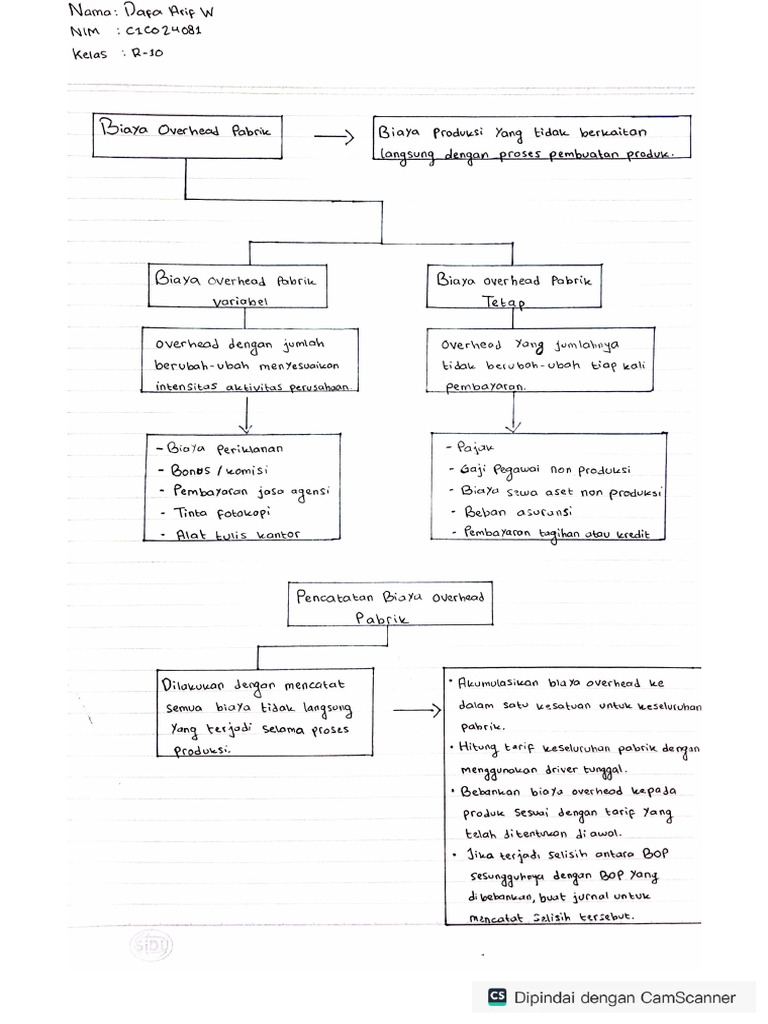 Nama: Dafa Arif W
NIM : C1C024081
Kelas : R-10
Biaya Overhead Pabrik
Biaya Produksi yang tidak berkaitan
langsung dengan proses pembuatan produk.
Biaya overhead Pabrik
variabel
Biaya overhead Pabrik
Tetap
overhead dengan jumlah
berubah-ubah menyesuaikan
intensitas aktivitas perusahaan.
overhead yang jumlahnya
tidak berubah-ubah tiap kali
pembayaran.
- Biaya Periklanan
- Bonus / komisi
- Pembayaran jasa agensi
- Tinta fotokopi
- Alat tulis kantor
- Pajak
- Gaji Pegawai non produksi
- Biaya sewa aset non produksi
- Beban asuransi
- Pembayaran tagihan atau kredit
Pencatatan Biaya overhead
Pabrik
Dilakukan dengan mencatat
semua biaya tidak langsung
yang terjadi selama proses
produksi.
• Akumulasikan biaya overhead ke
dalam satu kesatuan untuk keseluruhan
pabrik.
• Hitung tarif keseluruhan pabrik dengan
menggunakan driver tunggal.
• Bebankan biaya overhead kepada
produk sesuai dengan tarif yang
telah ditentukan di awal.
• Jika terjadi selisih antara BOP
sesungguhnya dengan BOP yang
dibebankan, buat jurnal untuk
mencatat selisih tersebut.
SiDU
CS Dipindai dengan CamScanner